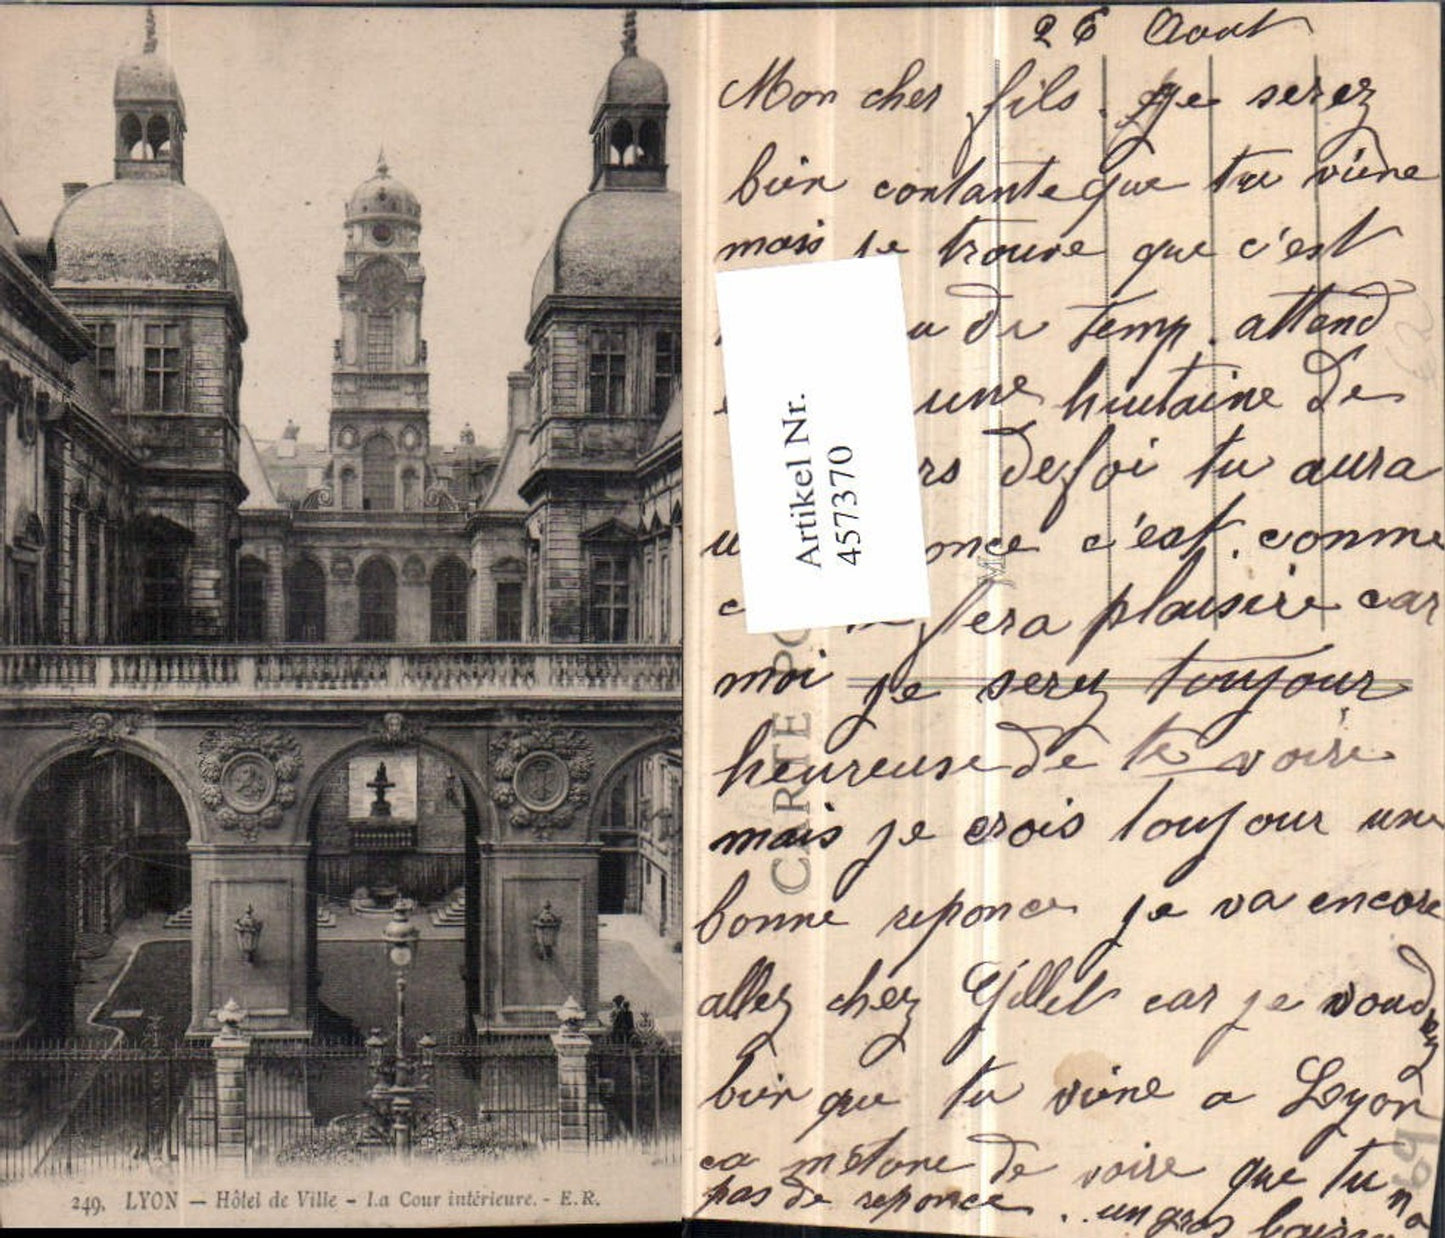 249. LYON — Hôtel de Ville - La Cour intérieure. - E. R.
26 Aout
Mon cher fils. je serez
bien contante que tu viène
mais je trouve que c'est
de temp. attend
une huitaine de
rs defoi tu aura
once c'est. conme
fera plaisire car
moi je serez toujour
heureuse de te voire
mais je crois toujour une
bonne reponce je va encore
allez chez Gillet car je voudrez
bien que tu viène a Leyon
ca metone de voire que tu na
pas de reponce. un gros
CARTE PO
Artikel Nr.
457370